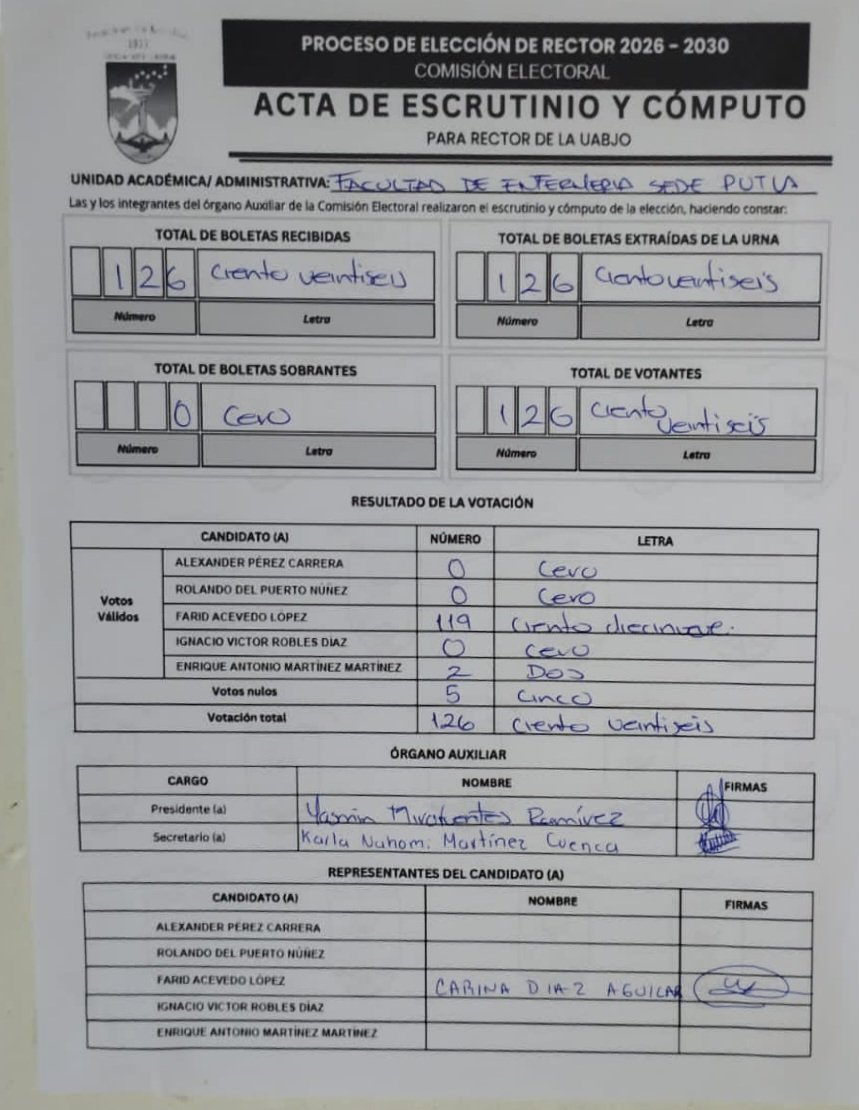 1933
PROCESO DE ELECCIÓN DE RECTOR 2026 - 2030
COMISIÓN ELECTORAL
ACTA DE ESCRUTINIO Y CÓMPUTO
PARA RECTOR DE LA UABJO
UNIDAD ACADÉMICA/ ADMINISTRATIVA: FACULTAD DE ENFERMERIA SEDE PUTLA
Las y los integrantes del órgano Auxiliar de la Comisión Electoral realizaron el escrutinio y cómputo de la elección, haciendo constar:
TOTAL DE BOLETAS RECIBIDAS
126 Ciento veintiseis
Número Letra
TOTAL DE BOLETAS EXTRAÍDAS DE LA URNA
126 Ciento veintiseis
Número Letra
TOTAL DE BOLETAS SOBRANTES
0 Cero
Número Letra
TOTAL DE VOTANTES
126 Ciento veintiseis
Número Letra
RESULTADO DE LA VOTACIÓN
CANDIDATO (A) NÚMERO LETRA
Votos Válidos
ALEXANDER PÉREZ CARRERA 0 Cero
ROLANDO DEL PUERTO NÚÑEZ 0 Cero
FARID ACEVEDO LÓPEZ 119 Ciento diecinueve.
IGNACIO VICTOR ROBLES DÍAZ 0 Cero
ENRIQUE ANTONIO MARTÍNEZ MARTÍNEZ 2 Dos
Votos nulos 5 Cinco
Votación total 126 Ciento veintiseis
ÓRGANO AUXILIAR
CARGO NOMBRE FIRMAS
Presidente (a) Yasmin Mirafuentes Ramírez
Secretario (a) Karla Nahomi Martínez Cuenca
REPRESENTANTES DEL CANDIDATO (A)
CANDIDATO (A) NOMBRE FIRMAS
ALEXANDER PÉREZ CARRERA
ROLANDO DEL PUERTO NÚÑEZ
FARID ACEVEDO LÓPEZ CARINA DIAZ AGUILAR
IGNACIO VICTOR ROBLES DÍAZ
ENRIQUE ANTONIO MARTÍNEZ MARTÍNEZ